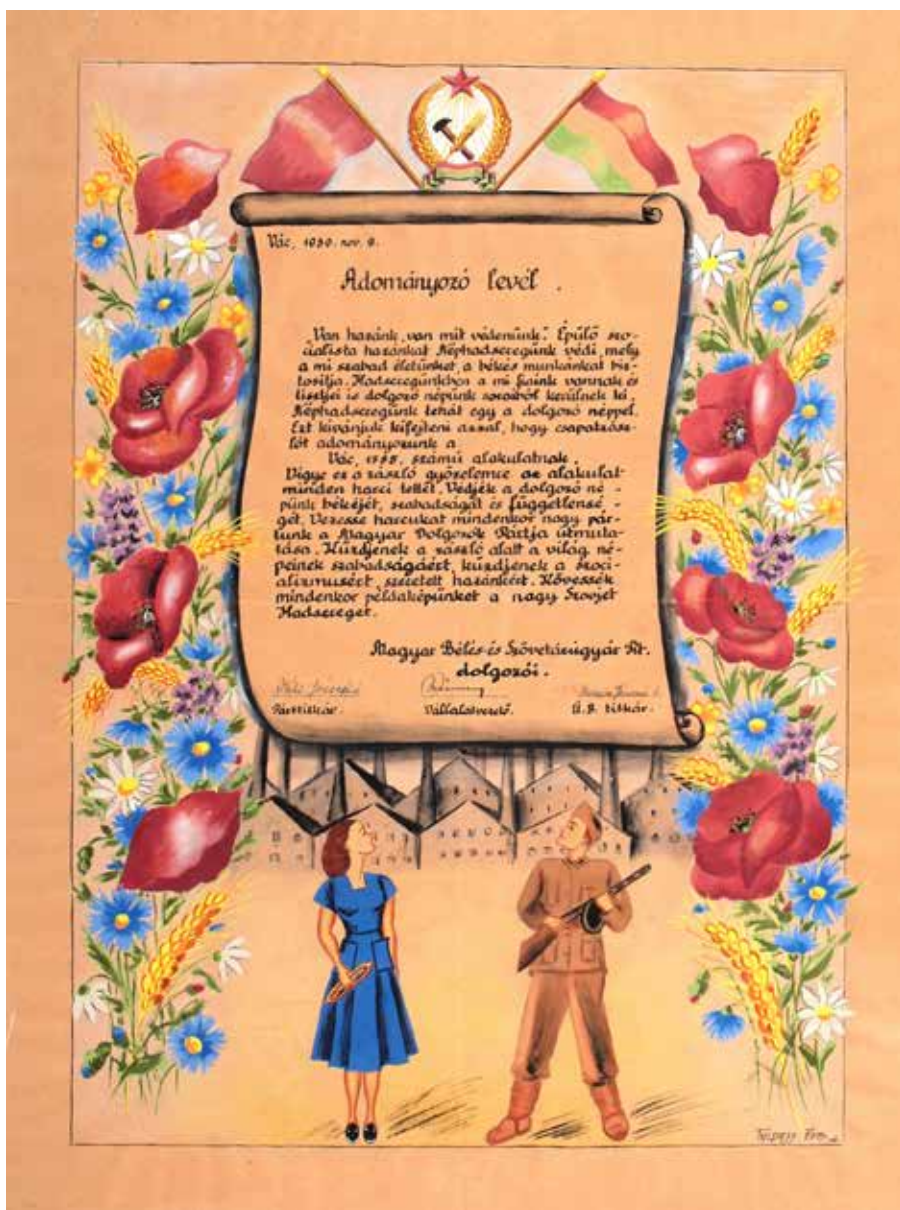 Vác, 1950. nov. 9.
Adományozó levél .
„Van hazánk, van mit védenünk." Épülő szo-
cialista hazánkat Néphadseregünk védi, mely
a mi szabad életünket, a békés munkánkat biz-
tosítja. Hadseregünkben a mi fiaink vannak és
tisztjei is dolgozó népünk soraiból kerülnek ki.
Néphadseregünk tehát egy a dolgozó néppel.
Ezt kívánjuk kifejteni azzal, hogy csapatzász-
lót adományozunk a
Vác, számú alakulatnak.
Vigye ez a zászló győzelemre az alakulat
minden harci tettét. Védjék a dolgozó né-
pünk békéjét, szabadságát és függetlensé-
gét. Vezesse harcukat mindenkor nagy pár-
tunk a Magyar Dolgozók Pártja útmuta-
tása. Küzdjenek a zászló alatt a világ né-
peinek szabadságáért, küzdjenek a szoci-
alizmusért, szeretett hazánkért. Kövessék
mindenkor példaképünket a nagy Szovjet
Hadsereget.
Magyar Bélés-és Szövetárúgyár Rt.
dolgozói.
Párttitkár. Vállalatvezető. Ü.B. titkár.